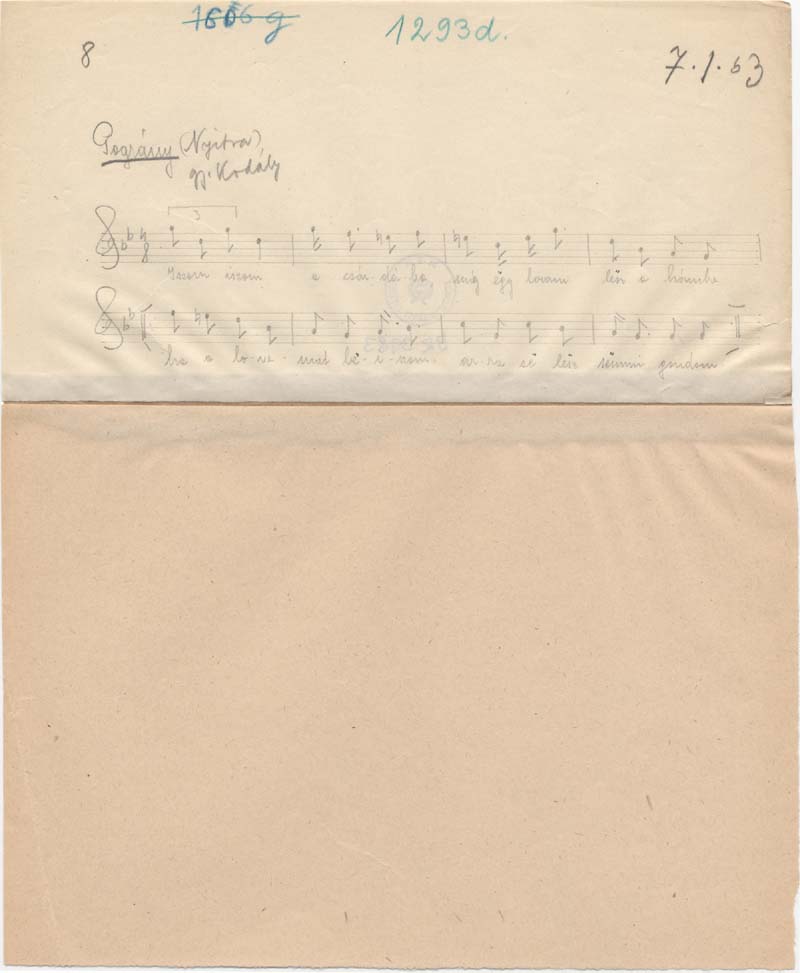 1293d.
8
7.1.63
Pográny (Nyitra)
gy. Kodály
3
Iszom iszom a csár-dá-ba míg ëgy lovam lësz a hámba
ha a lo-va-mat bë-i-szom arra së lësz sëmmi gondom